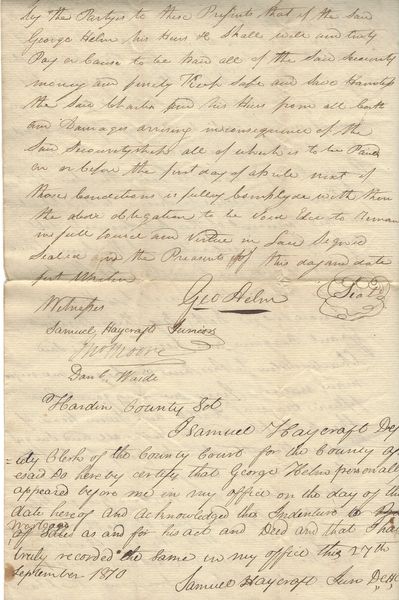 by the Partys to these Presents that if the Said
George Helm his Heirs &c Shall well and truly
Pay or Cause to be paid all of the Said Security
money and Keep Safe and Save Harmless
the Said Charles his Heirs from all Costs
and Damages arising inconsequence of the
Said Securityship all of which is to be Paid
on or before the first day of Aprile next if
those Conditions is fully Complyde with then
the above obligation to be Void Else to Remain
in full and Virtue in Law Signed
Sealed and the Presents this day and date
first Written
Witnesses
Geo Helm
Seal
Samuel Haycraft Junior
Thos Moore
Danl. Waide
Hardin County Sct
I Samuel Haycraft Dep
uty Clerk of the County Court for the County af
esaid Do hereby certify that George Helm personall
appeared before me in my office on the day of the
date hereof and acknowledged this Indenture
Mortgage
as and for his act and Deed and that I have
truly recorded the Same in my office this 27th
September 1810
Samuel Haycraft Jun